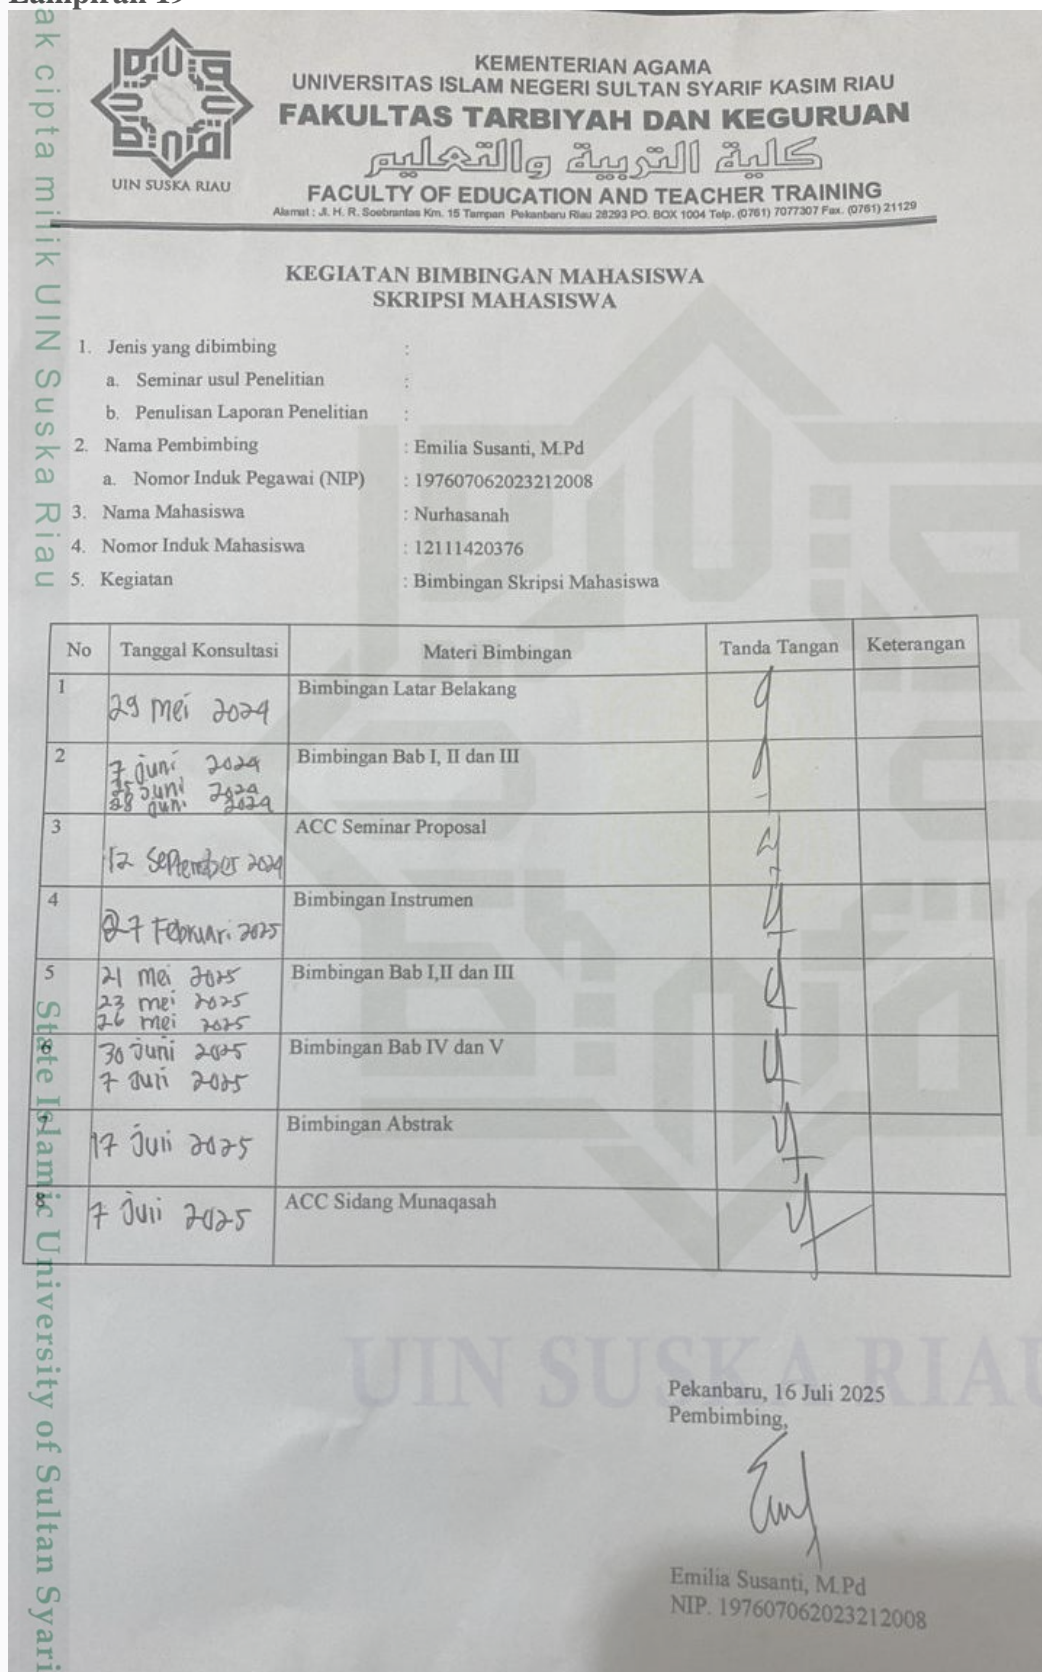 Lampiran 19
ak cipta milik UIN Suska Riau
UIN SUSKA RIAU
KEMENTERIAN AGAMA
UNIVERSITAS ISLAM NEGERI SULTAN SYARIF KASIM RIAU
FAKULTAS TARBIYAH DAN KEGURUAN
كلية التربية والتعليم
FACULTY OF EDUCATION AND TEACHER TRAINING
Alamat : Jl. H. R. Soebrantas Km. 15 Tampan Pekanbaru Riau 28293 PO. BOX 1004 Telp. (0761) 7077307 Fax. (0761) 21129
KEGIATAN BIMBINGAN MAHASISWA
SKRIPSI MAHASISWA
1. Jenis yang dibimbing :
a. Seminar usul Penelitian :
b. Penulisan Laporan Penelitian :
2. Nama Pembimbing : Emilia Susanti, M.Pd
a. Nomor Induk Pegawai (NIP) : 197607062023212008
3. Nama Mahasiswa : Nurhasanah
4. Nomor Induk Mahasiswa : 12111420376
5. Kegiatan : Bimbingan Skripsi Mahasiswa
No Tanggal Konsultasi Materi Bimbingan Tanda Tangan Keterangan
1 29 Mei 2024 Bimbingan Latar Belakang
2 7 Juni 2024 Bimbingan Bab I, II dan III
25 Juni 2024
28 Juni 2024
3 12 September 2024 ACC Seminar Proposal
4 27 Februari 2025 Bimbingan Instrumen
5 21 Mei 2025 Bimbingan Bab I,II dan III
23 mei 2025
26 mei 2025
6 30 Juni 2025 Bimbingan Bab IV dan V
7 Juli 2025
7 17 Juli 2025 Bimbingan Abstrak
8 7 Juli 2025 ACC Sidang Munaqasah
State Islamic University of Sultan Syari
UIN SUSKA RIAU
Pekanbaru, 16 Juli 2025
Pembimbing,
Emilia Susanti, M.Pd
NIP. 197607062023212008